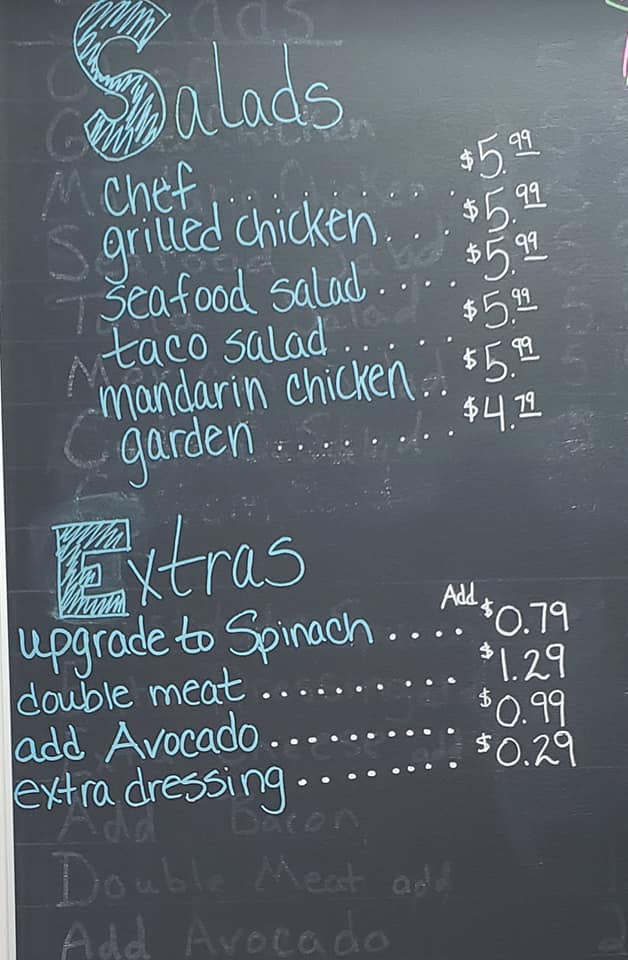 Salads
chef .......... $5.99
grilled chicken .... $5.99
seafood salad .... $5.99
taco salad ...... $5.99
mandarin chicken .. $5.99
garden ........ $4.79
Extras
Add
upgrade to Spinach .... $0.79
double meat .......... $1.29
add Avocado .......... $0.99
extra dressing ........ $0.29
Add Bacon
Double Meat add
Add Avocado